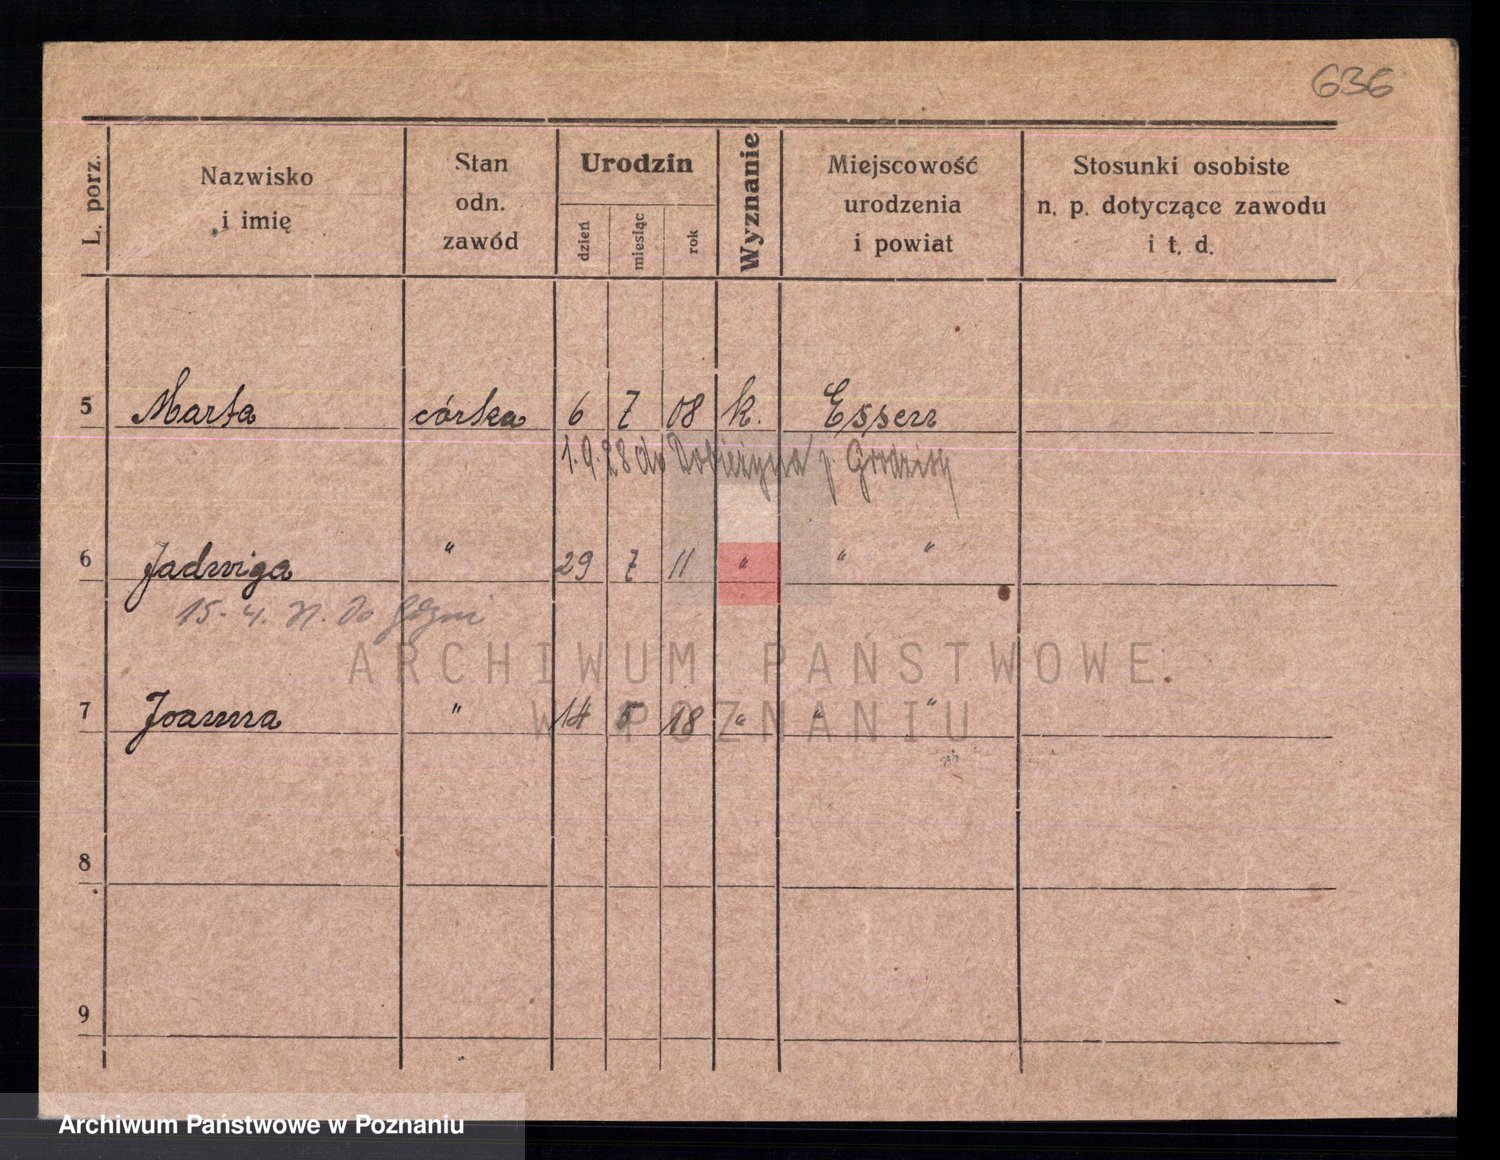 636
L. porz.
Nazwisko
i imię
Stan
odn.
zawód
Urodzin
dzień
miesiąc
rok
Wyznanie
Miejscowość
urodzenia
i powiat
Stosunki osobiste
n. p. dotyczące zawodu
i t. d.
5 Marta córka 6 7 08 k. Essen
1.9.28 do Dobieżyna p. Grodzisk
6 Jadwiga " 29 7 11 " " "
15. 4. do Gdyni
7 Joanna " 14 5 18 " " "
8
9
ARCHIWUM PAŃSTWOWE
W POZNANIU
Archiwum Państwowe w Poznaniu